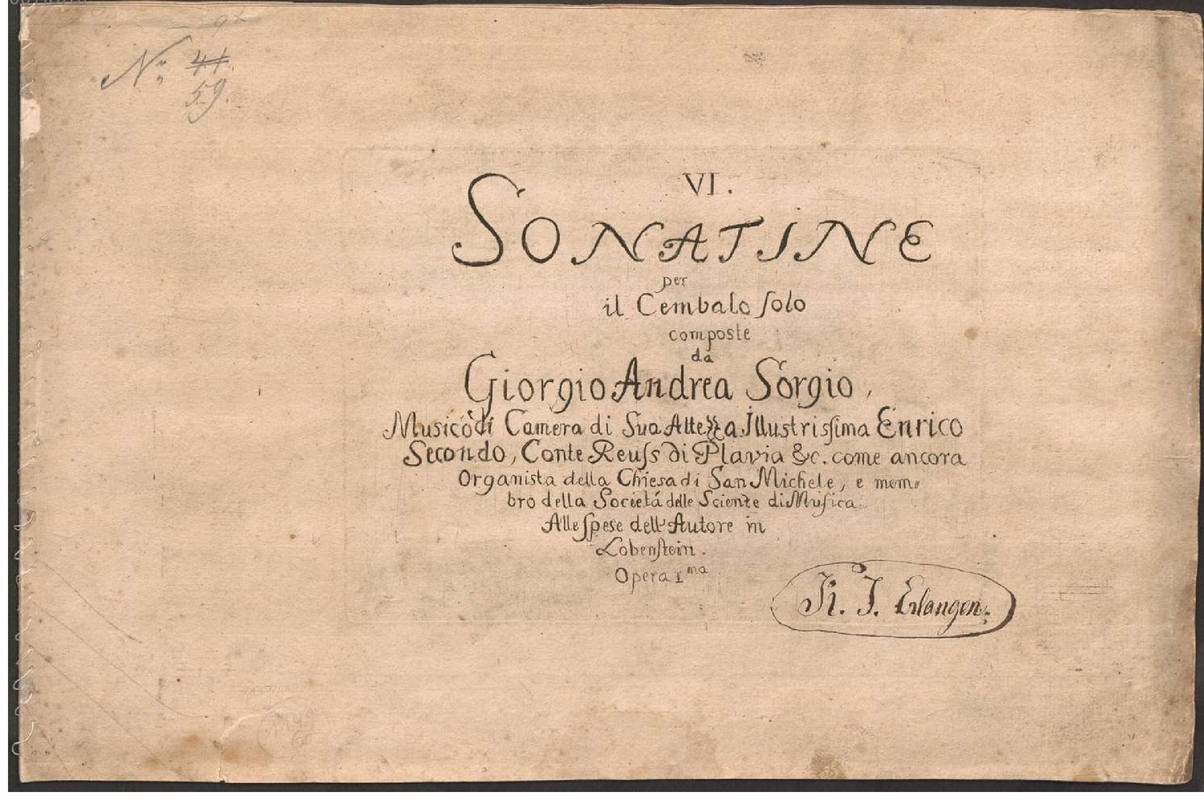 No. 41.
59.
VI.
SONATINE
per
il Cembalo solo
composte
da
Giorgio Andrea Sorgio,
Musico di Camera di Sua Altezza Illustrissima Enrico
Secondo, Conte Reuss di Plavia &c. come ancora
Organista della Chiesa di San Michele, e mem=
bro della Societá delle Scienze di Musica.
Alle spese dell'Autore in
Lobenstein.
Opera I.ma
K. I. Erlangen.